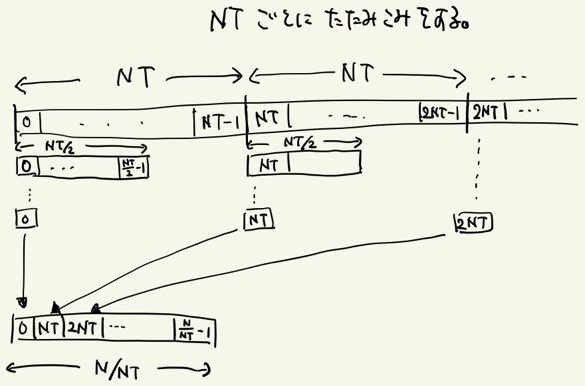 NT ごとに たたみこみをする。
NT NT ...
0 ... NT-1 NT ... 2NT-1 2NT ...
NT/2 NT/2
0 ... NT/2-1 NT
0 NT 2NT
0 NT 2NT ... N/NT-1
N/NT